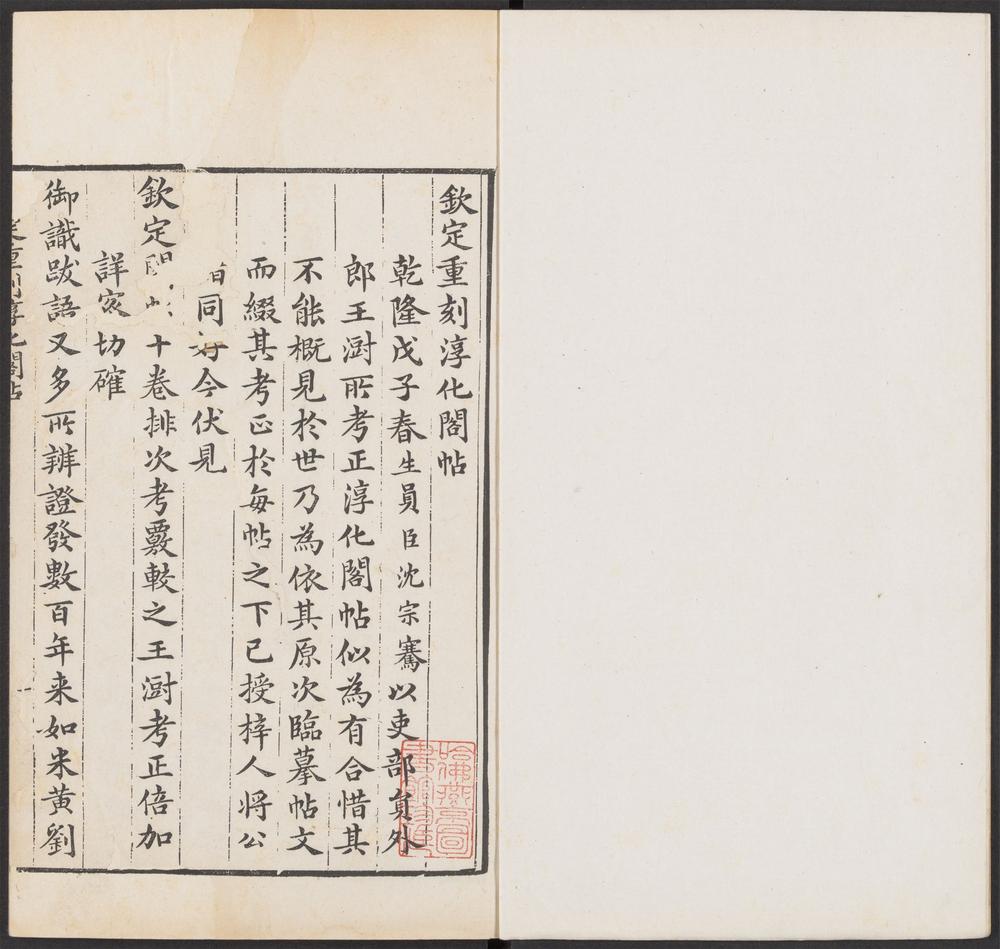 欽定重刻淳化閣帖
乾隆戊子春生員臣沈宗騫以吏部員外
郎王澍所考正淳化閣帖似為有合惜其
不能概見於世乃為依其原次臨摹帖文
而綴其考正於每帖之下已授梓人將公
同好今伏見
欽定 十卷排次考覈較之王澍考正倍加
詳密切確
御識跋語又多所辨證發數百年来如米黃劉
重刻淳化閣帖
哈佛燕京圖